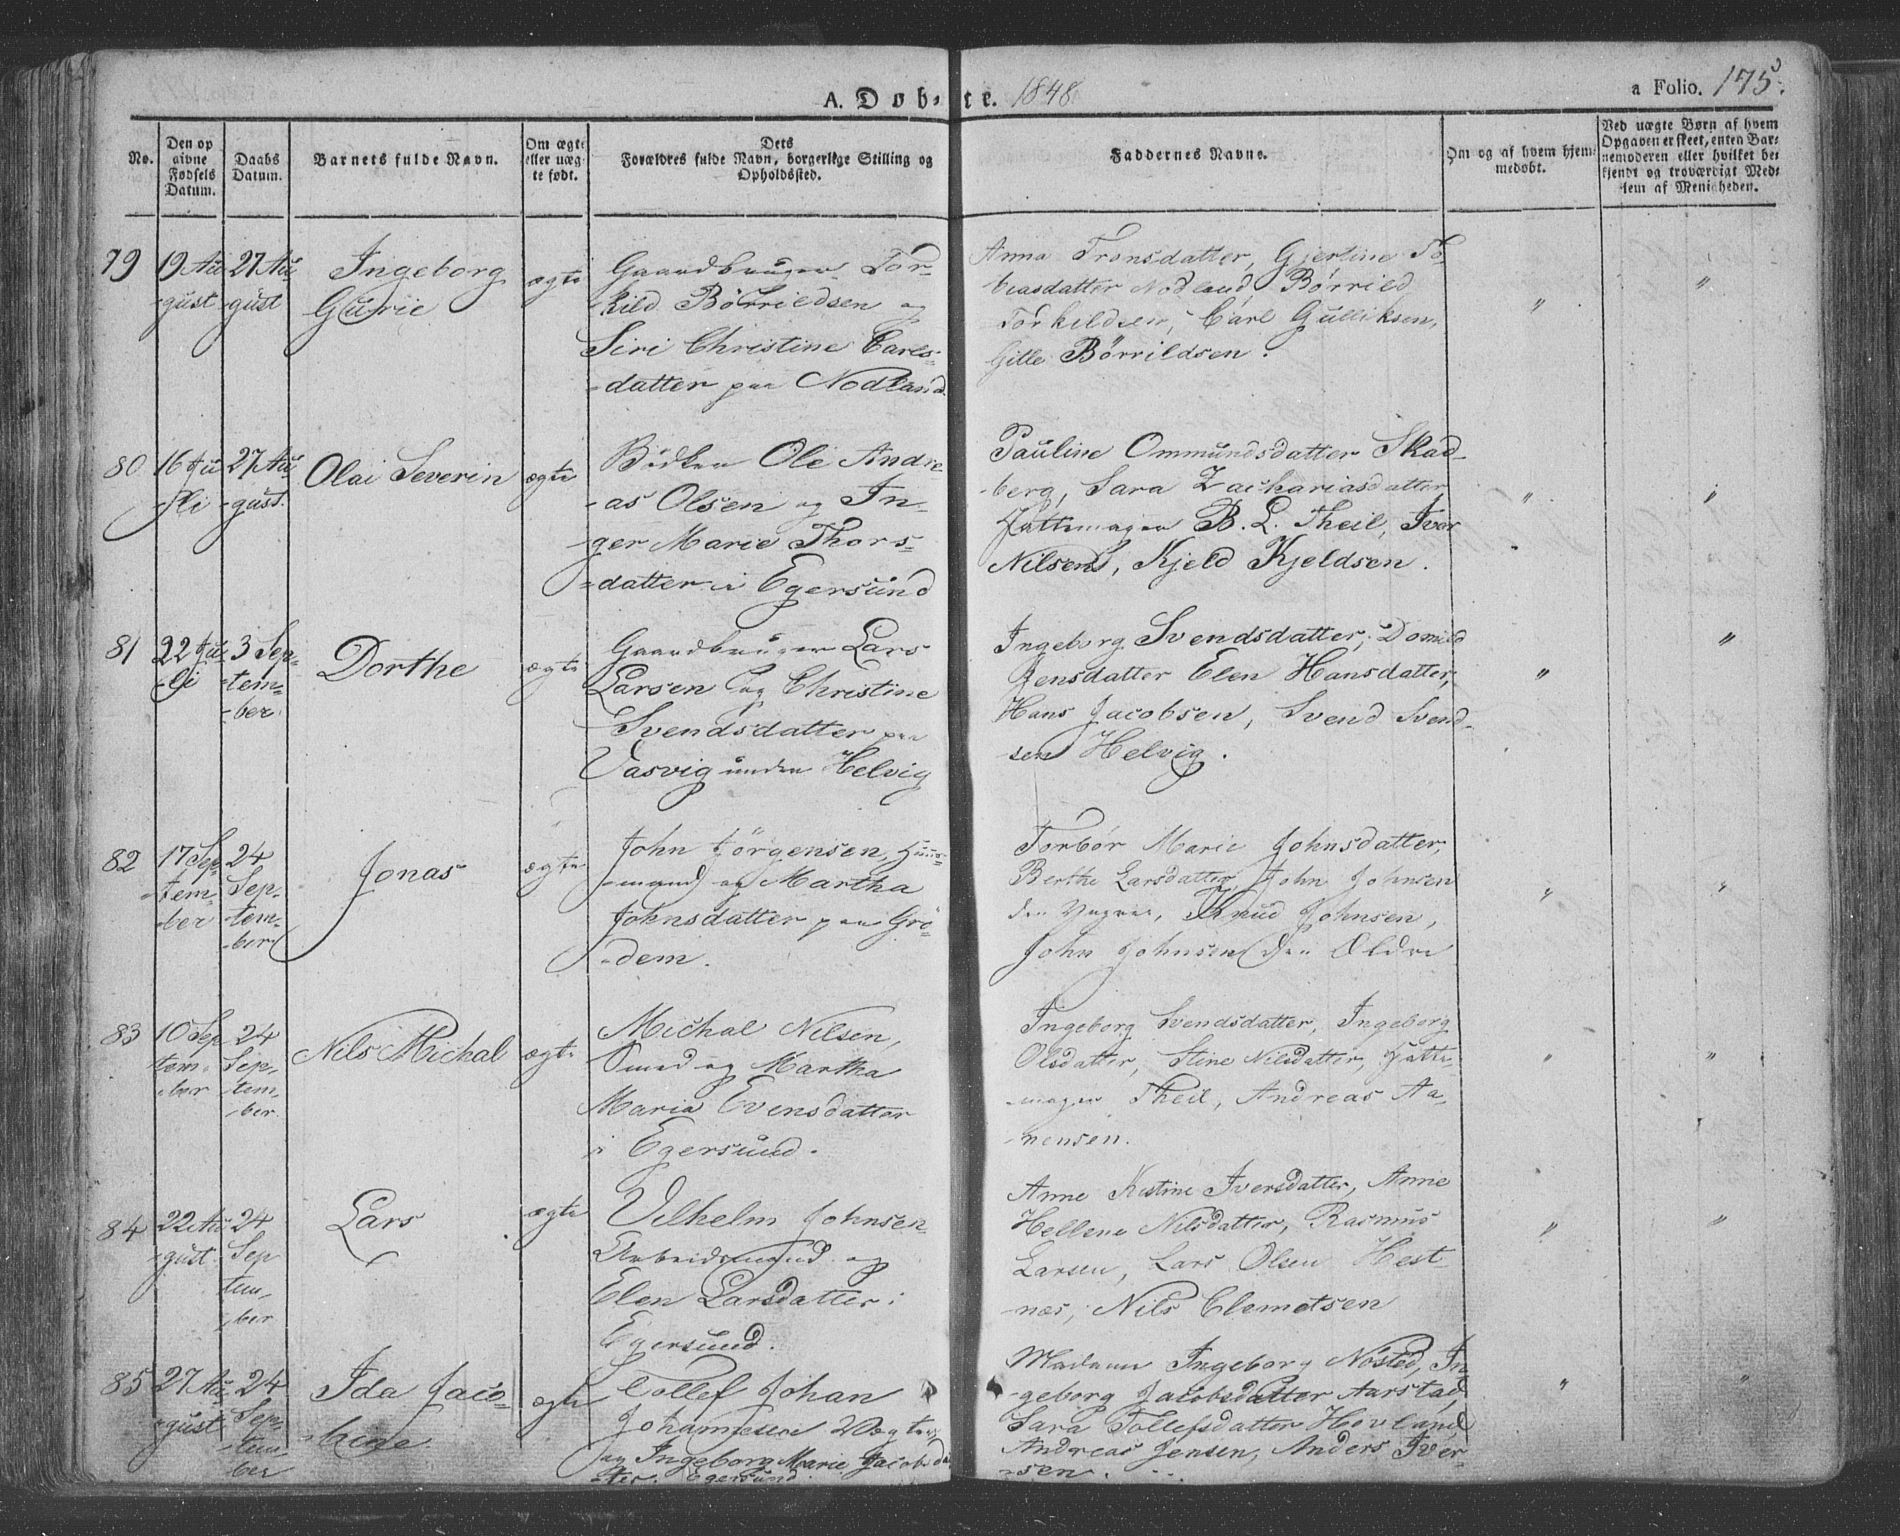 A. Døbte. 1848
a Folio. 175.
No.
Den opgivne Fødsels Datum.
Daabs Datum.
Barnets fulde Navn.
Om ægte eller uægte født.
Dets Forældres fulde Navn, borgerlige Stilling og Opholdssted.
Faddernes Navne.
Om og af hvem hjemmedøbt.
Ved uægte Børn af hvem Opgaven er skeet, enten Barnemoderen eller hvilket bekjendt og troværdigt Medlem af Menigheden.
79
19 Au-
-gust
27 Au-
-gust
Ingeborg
Gurie
ægte
Gaardbruger Tor-
-kild Börrildsen og
Siri Christine Carls-
-datter paa Nodland
Anna Tronsdatter, Gjertine To-
biasdatter Nodland, Börrild
Torkildsen, Carl Gulliksen,
Gitle Börrildsen.
"
"
80
16 Ju-
-li
27 Au-
-gust.
Olai Severin
ægte
Bödker Ole Andre-
-as Olsen og In-
-ger Marie Thors-
-datter i Egersund
Pauline Ommundsdatter Skad-
-berg, Sara Zachariasdatter
Hattemager B. L. Theil, Iver
Nilsen, Kjeld Kjeldsen.
"
"
81
22 Ju-
-li
3 Sep-
-tem-
-ber.
Dorthe
ægte
Gaardbruger Lars
Larsen og Christine
Svendsdatter paa
Vasvig under Helvig
Ingeborg Svendsdatter, Domild
Jensdatter Elen Hansdatter,
Hans Jacobsen, Svend Svend-
sen Helvig.
"
"
82
17 Sep-
-tem-
-ber
24
Sep-
-tem-
-ber
Jonas
ægte
John Jörgensen, Huus-
-mand og Martha
Johnsdatter paa Grö-
-dem.
Torbör Marie Johnsdatter,
Berthe Larsdatter, John Johnsen
den Yngre, Knud Johnsen,
John Johnsen den Ældre
"
"
83
10 Sep-
tem-
-ber
24
Sep-
-tem-
-ber.
Nils Michal
ægte
Michal Nilsen,
Smed og Martha
Maria Evensdatter
i Egersund.
Ingeborg Svendsdatter, Ingeborg
Olsdatter, Stine Nilsdatter, Hatte-
-mager Theil, Andreas Aa-
-nensen.
"
"
84
22 Au-
-gust.
24
Sep-
tem-
-ber
Lars
ægte
Vilhelm Johnsen
Arbeidsmand og
Elen Larsdatter i
Egersund.
Anne Kistine Iversdatter, Anne
Hellene Nilsdatter, Rasmus
Larsen, Lars Olsen Hest-
næs, Nils Clemetsen
"
"
85
27 Au-
-gust
24
Sep-
-tem-
-ber
Ida Jaco-
-bine
ægte
Tollef Johan
Johannesen Vægter
og Ingeborg Marie Jacobsdat-
-ter. Egersund.
Madame Ingeborg Nösted, In-
-geborg Jacobsdatter Aarstad,
Sara Tollefsdatter Hovland,
Andreas Jensen, Anders Iver-
-sen.
"
"